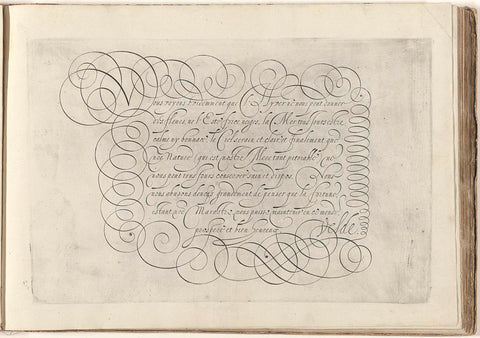 Nous voyons evidemment que l'Hyver ne nous peut donner
des fleurs, ne l'Esté froit neges, la Mer tous jours estre
calme ny bonnace, le Ciel serain et clair, et finalement que
nos Nature (qui est nostre Mere tant
nous peut tous jours conserver sain et dispos. Nous
nous abusons donc grandement de penser que la fortune,
estant pire Maratre, nous puisse maintenir en ce monde
prospere et bien heureux.
Velde.